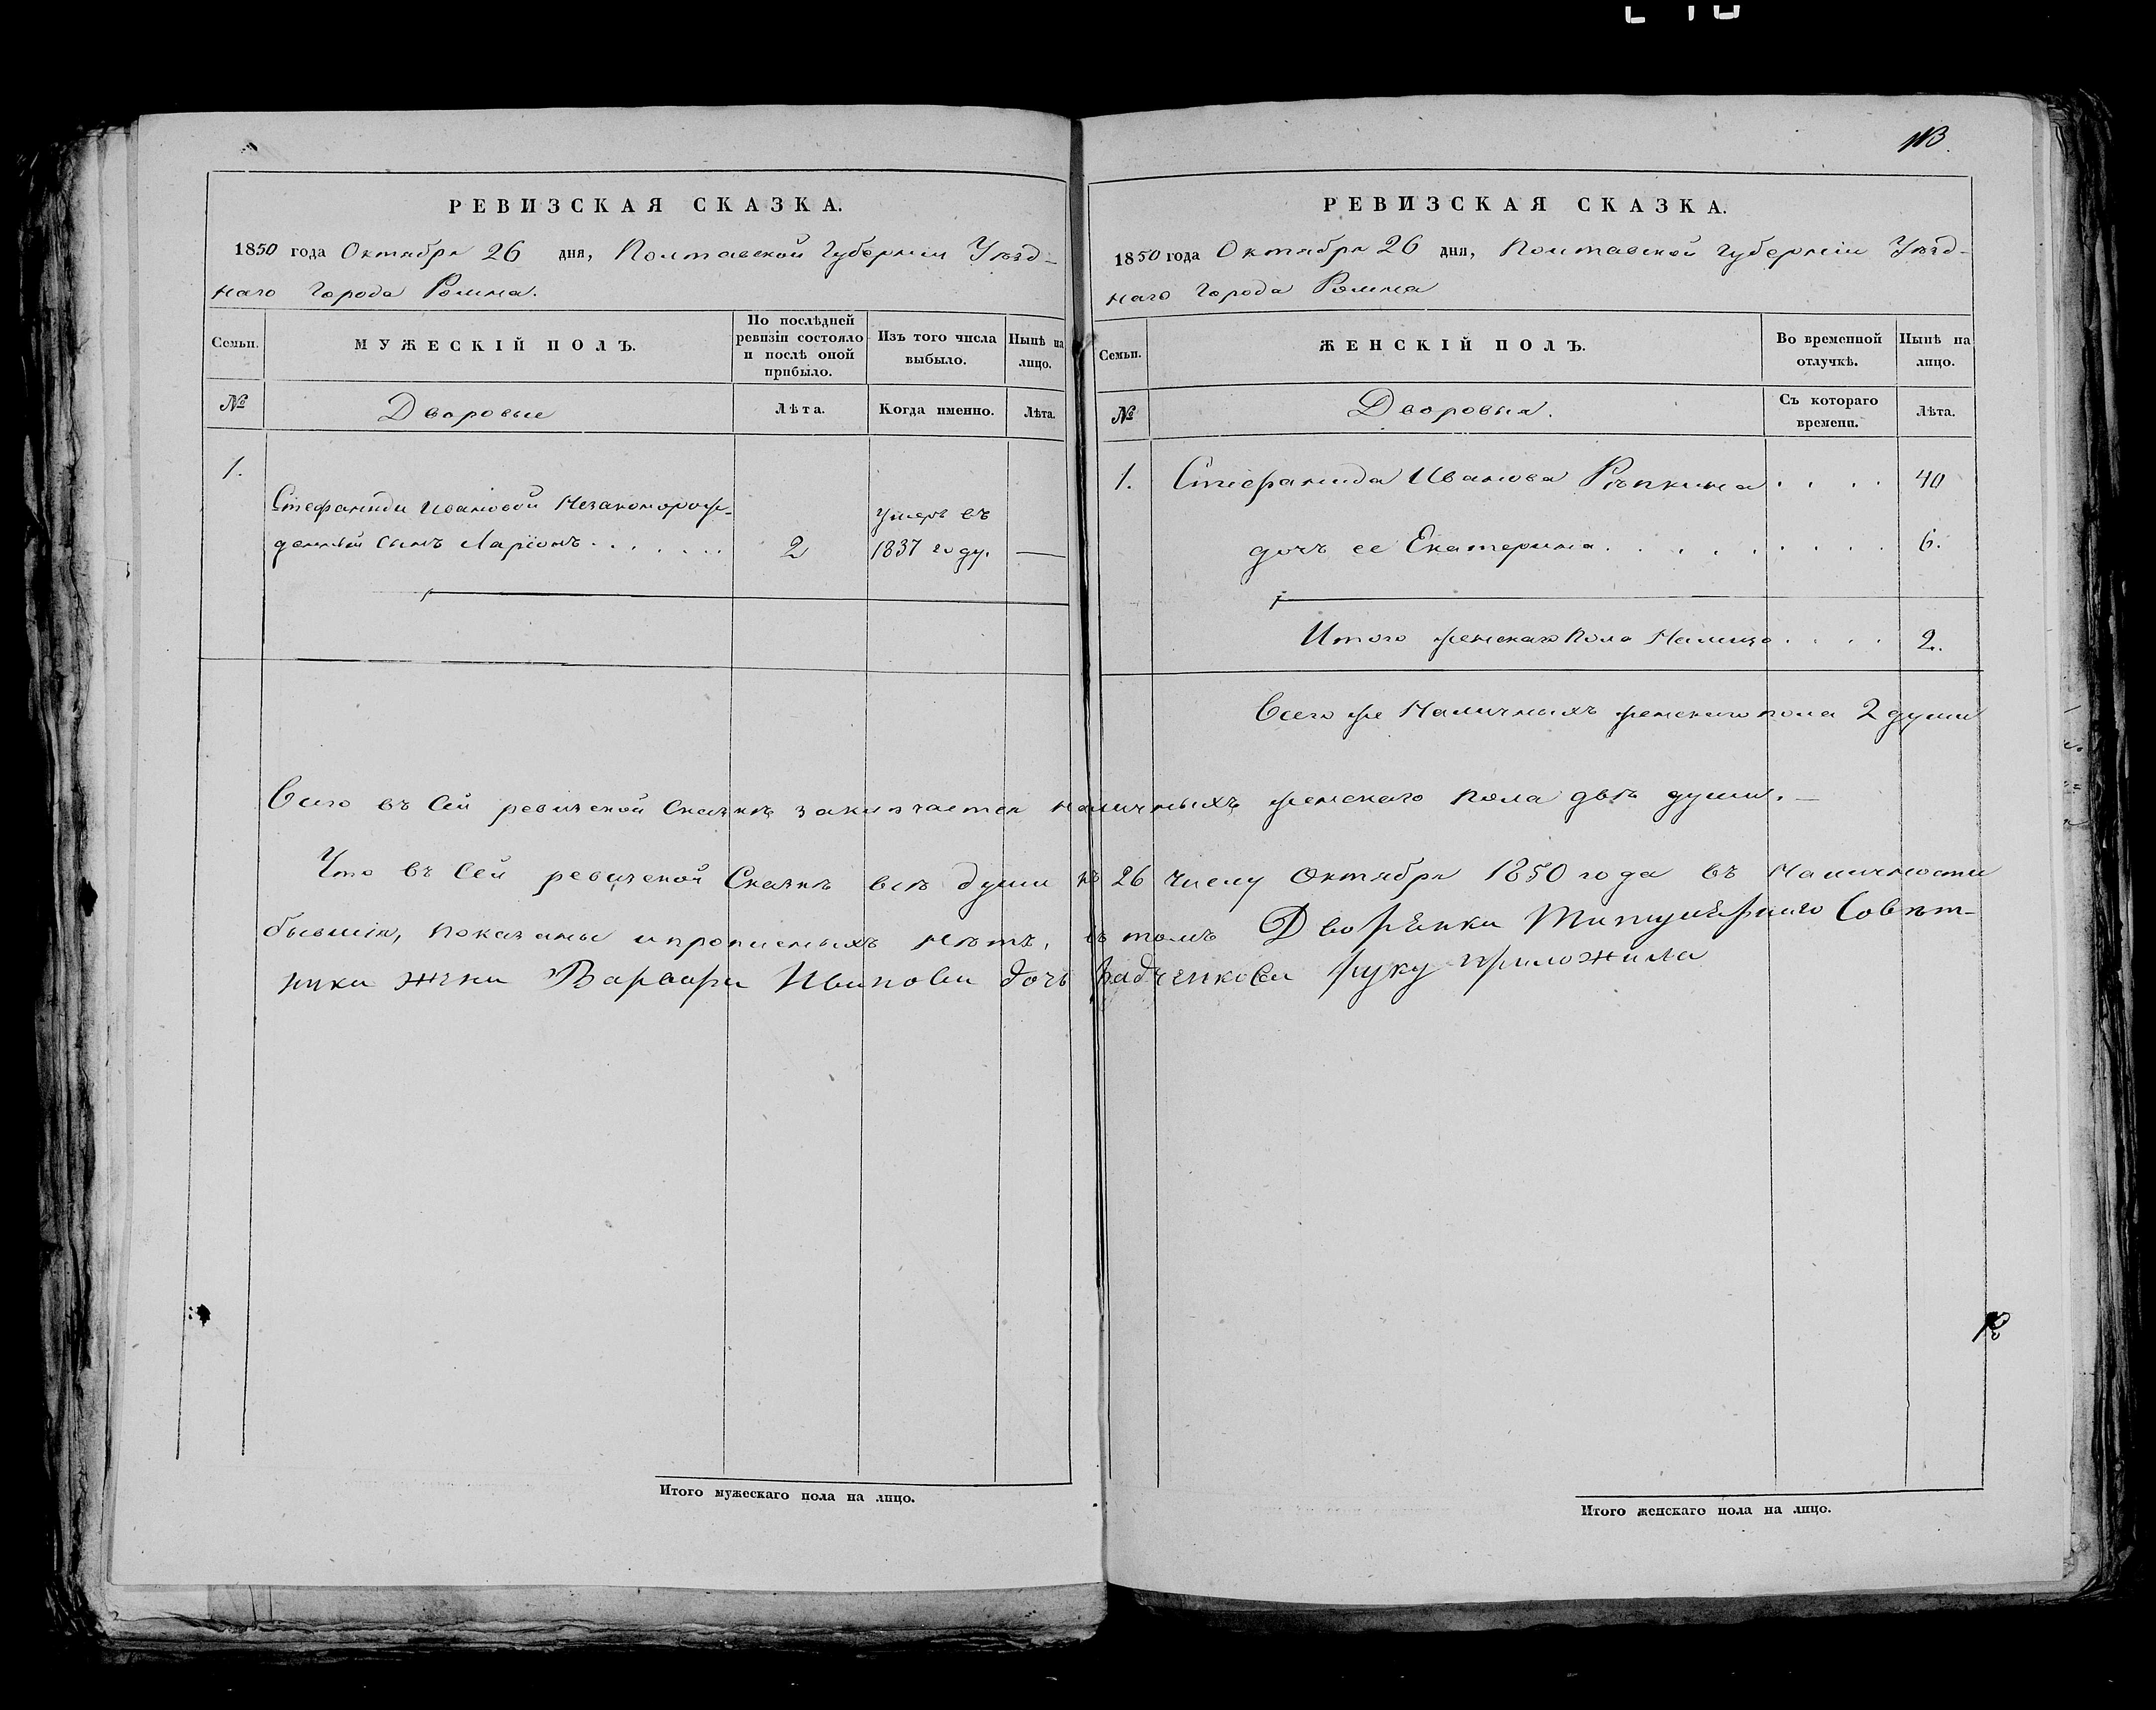 113.
РЕВИЗСКАЯ СКАЗКА.
1850 года Октября 26 дня, Полтавской Губерніи Уѣзд-
наго Города Ромна.
Семьи.
МУЖЕСКІЙ ПОЛЪ.
По послѣдней ревизіи состояло и послѣ оной прибыло.
Изъ того числа выбыло.
Нынѣ на лицо.
№
Дворовые
Лѣта.
Когда именно.
Лѣта.
1.
Стефаниды Ивановой Незаконорож-
денный сынъ Ларіонъ . . . . . . . 2 Умеръ въ 1837 году. —
Всего въ сей ревизской Сказкѣ заключается наличныхъ женскаго пола двѣ души. —
Что въ сей ревизской Сказкѣ всѣ души къ 26 числу Октября 1850 года въ Наличности
бывшія, показаны и прописныхъ нѣтъ, въ томъ Дворянка Титулярнаго Совѣт-
ника жена Варвара Иванова дочь Радченкова руку приложила
Итого мужескаго пола на лицо.
РЕВИЗСКАЯ СКАЗКА.
1850 года Октября 26 дня, Полтавской Губерніи Уѣзд-
наго Города Ромна
Семьи.
ЖЕНСКІЙ ПОЛЪ.
Во временной отлучкѣ.
Нынѣ на лицо.
№
Дворовыя.
Съ котораго времени.
Лѣта.
1. Стефанида Иванова Рѣпкина . . . . 40
дочь ее Екатерина . . . . . . . . 6.
Итого женскаго пола Налицо . . . . 2.
Всего же Наличныхъ женскаго пола 2 души
Итого женскаго пола на лицо.